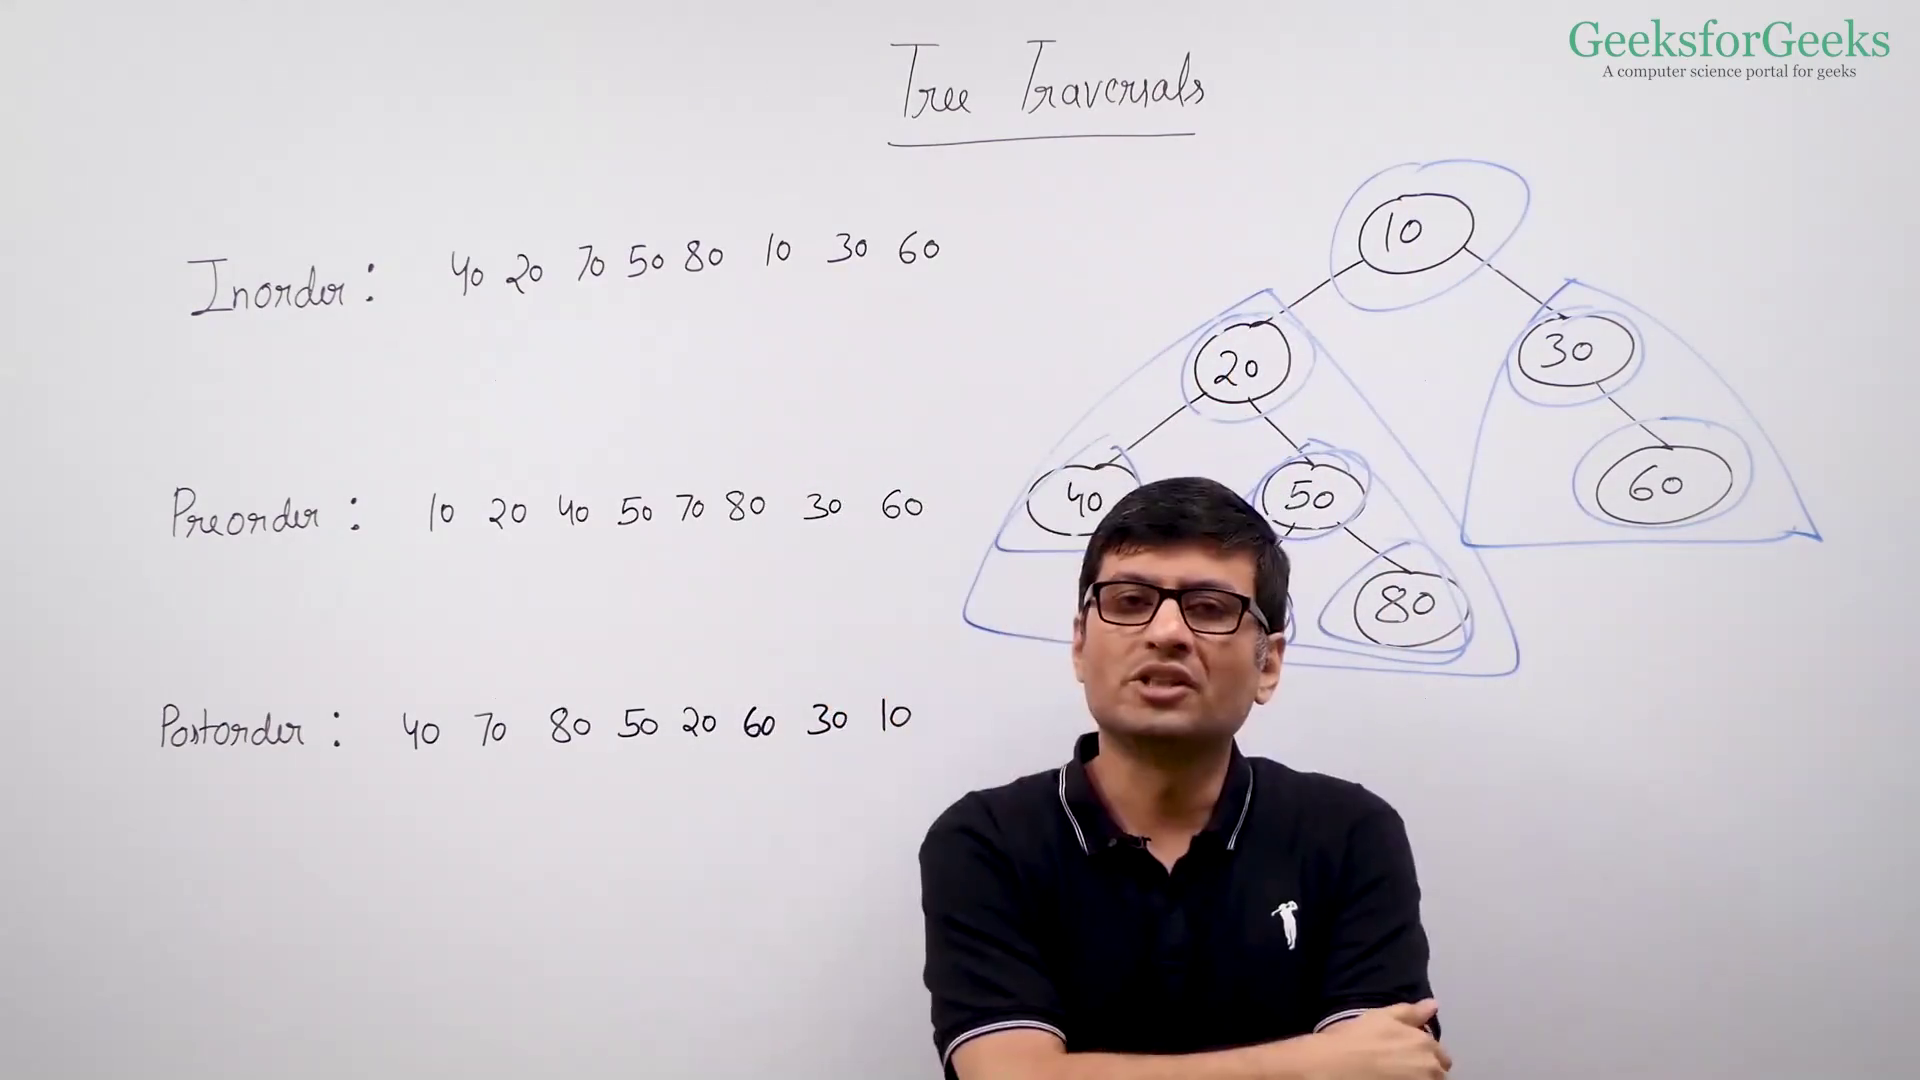 GeeksforGeeks
A computer science portal for geeks
Tree Traversals
Inorder : 40 20 70 50 80 10 30 60
Preorder : 10 20 40 50 70 80 30 60
Postorder : 40 70 80 50 20 60 30 10
10
20
30
40
50
60
80